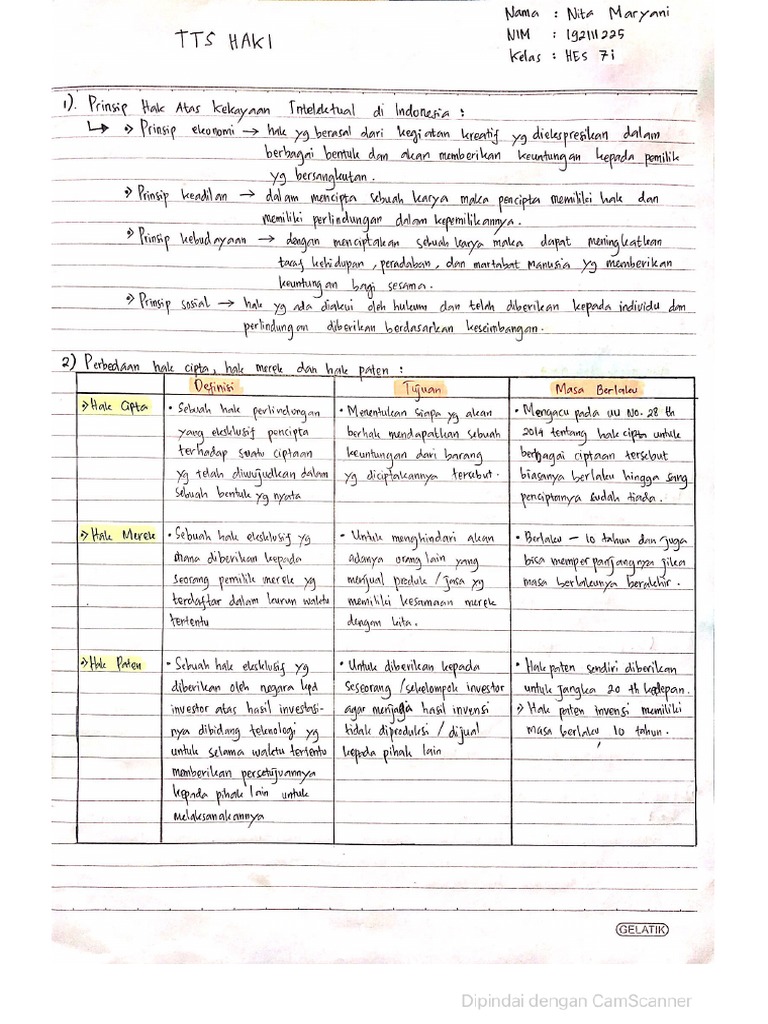 Nama : Nita Maryani
TTS HAKI
NIM : 192111225
Kelas : HES 7i
1). Prinsip Hak Atas Kekayaan Intelektual di Indonesia :
↳ → Prinsip ekonomi → hak yg berasal dari kegiatan kreatif yg diekspresikan dalam
berbagai bentuk dan akan memberikan keuntungan kepada pemilik
yg bersangkutan.
→ Prinsip keadilan → dalam mencipta sebuah karya maka pencipta memiliki hak dan
memiliki perlindungan dalam kepemilikannya.
→ Prinsip kebudayaan → dengan menciptakan sebuah karya maka dapat meningkatkan
taraf kehidupan, peradaban, dan martabat manusia yg memberikan
keuntungan bagi sesama.
→ Prinsip sosial → hak yg ada diakui oleh hukum dan telah diberikan kepada individu dan
perlindungan diberikan berdasarkan keseimbangan.
2) Perbedaan hak cipta, hak merek dan hak paten :
Definisi Tujuan Masa Berlaku
→ Hak Cipta
• Sebuah hak perlindungan
yang eksklusif pencipta
terhadap suatu ciptaan
yg telah diwujudkan dalam
sebuah bentuk yg nyata
• Menentukan siapa yg akan
berhak mendapatkan sebuah
keuntungan dari barang
yg diciptakannya tersebut.
• Mengacu pada UU No. 28 th
2014 tentang hak cipta untuk
berbagai ciptaan tersebut
biasanya berlaku hingga sang
penciptanya sudah tiada.
→ Hak Merek
• Sebuah hak eksklusif yg
dmana diberikan kepada
seorang pemilik merek yg
terdaftar dalam kurun waktu
tertentu
• Untuk menghindari akan
adanya orang lain yang
menjual produk / jasa yg
memiliki kesamaan merek
dengan kita.
• Berlaku – 10 tahun dan juga
bisa memperpanjangnya jika
masa berlakunya berakhir.
→ Hak Paten
• Sebuah hak eksklusif yg
diberikan oleh negara kpd
investor atas hasil investasi-
nya dibidang teknologi yg
untuk selama waktu tertentu
memberikan persetujuannya
kepada pihak lain untuk
melaksanakannya
• Untuk diberikan kepada
seseorang / sekelompok investor
agar menjaga hasil invensi
tidak diproduksi / dijual
kepada pihak lain
• Hak paten sendiri diberikan
untuk jangka 20 th kedepan.
→ Hak paten invensi memiliki
masa berlaku 10 tahun.
GELATIK
Dipindai dengan CamScanner